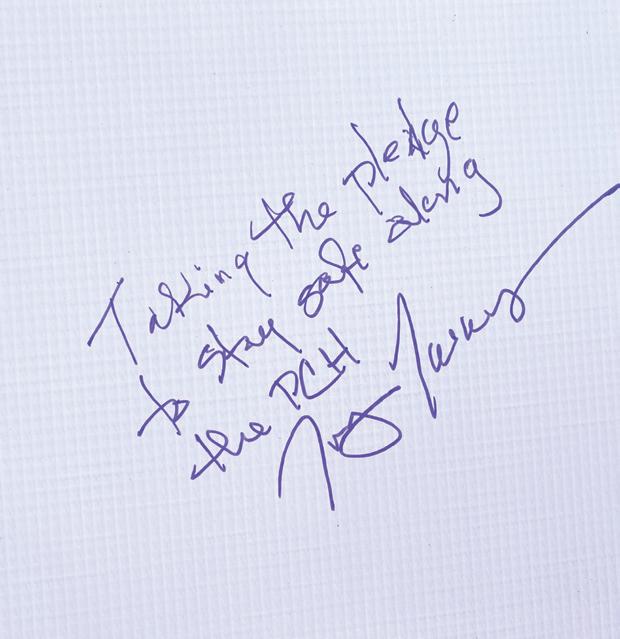 Taking the pledge
to stay safe along
the PCH